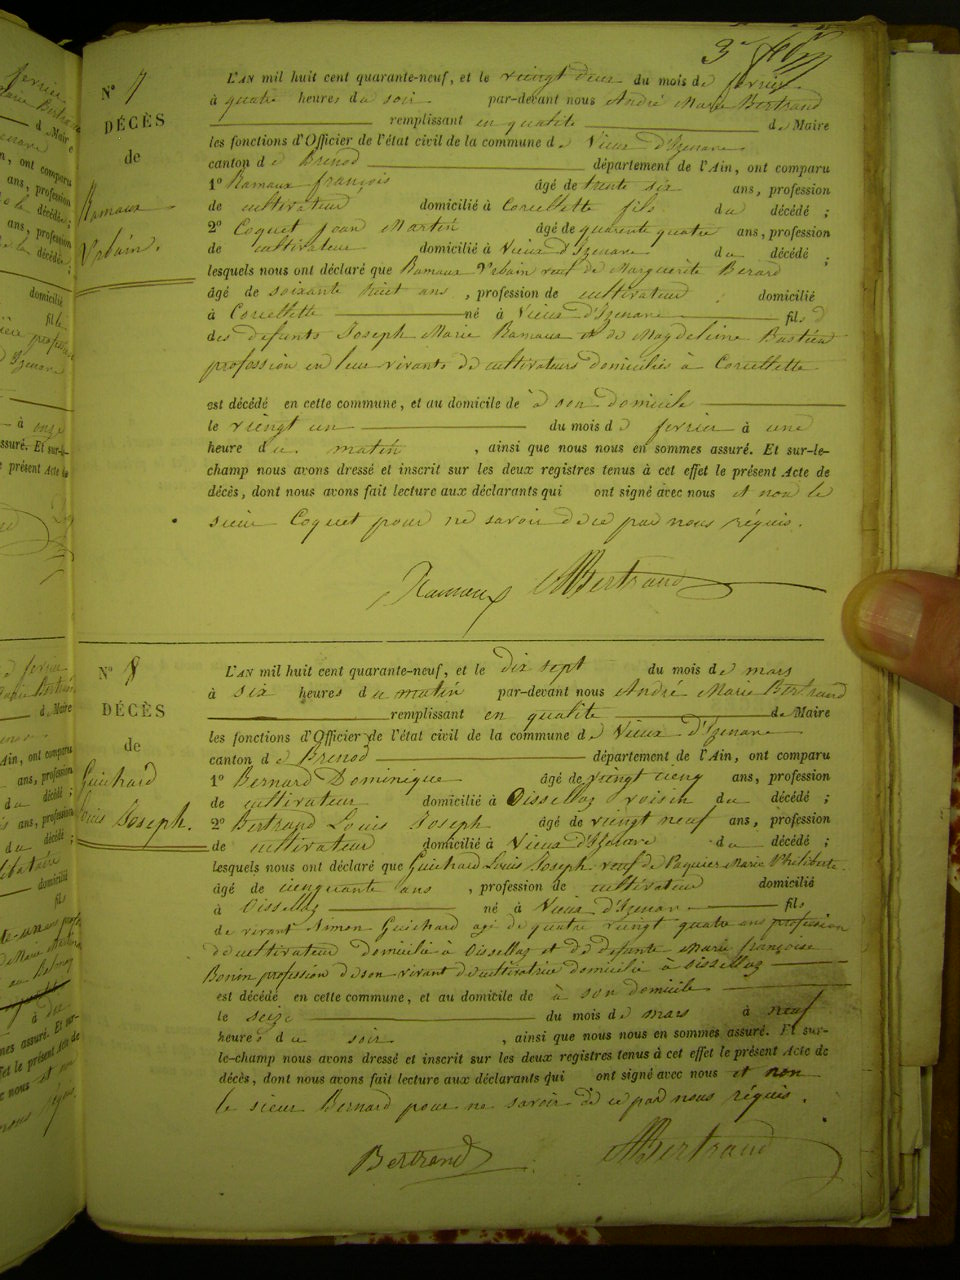 3e
N° 7
DÉCÈS
de
Ramaux
Urbain.
L'AN mil huit cent quarante-neuf, et le vingt deux du mois de février
à quatre heures du soir par-devant nous André Marie Bertrand
remplissant en qualité de Maire
les fonctions d'Officier de l'état civil de la commune de Vieux d'Izenave
canton de Brenod département de l'Ain, ont comparu
1° Ramaux françois âgé de trente six ans, profession
de cultivateur domicilié à Corcellette fils du décédé ;
2° Coquet Jean Martin âgé de quarente quatre ans, profession
de cultivateur domicilié à Vieux d'Izenave du décédé ;
lesquels nous ont déclaré que Ramaux Urbain veuf de Marguerite Berard
âgé de soixante huit ans , profession de cultivateur domicilié
à Corcellette né à Vieux d'Izenave fils
des defunts Joseph Marie Ramaux et de Magdeleine Bastien
profession en leur vivants de cultivateurs domiciliés à Corcellette
est décédé en cette commune, et au domicile de à son domicile
le vingt un du mois de fevrier à une
heure du matin , ainsi que nous nous en sommes assuré. Et sur-le-
champ nous avons dressé et inscrit sur les deux registres tenus à cet effet le présent Acte de
décès, dont nous avons fait lecture aux déclarants qui ont signé avec nous et non le
sieur Coquet pour ne savoir de ce par nous réquis.
Ramaux Bertrand
N° 8
DÉCÈS
de
Guichard
Louis Joseph.
L'AN mil huit cent quarante-neuf, et le dix sept du mois de mars
à six heures du matin par-devant nous André Marie Bertrand
remplissant en qualité de Maire
les fonctions d'Officier de l'état civil de la commune de Vieux d'Izenave
canton de Brenod département de l'Ain, ont comparu
1° Bernard Dominique âgé de vingt cinq ans, profession
de cultivateur domicilié à Oissellaz voisin du décédé ;
2° Bertrand Louis Joseph âgé de vingt neuf ans, profession
de cultivateur domicilié à Vieux d'Izenave du décédé ;
lesquels nous ont déclaré que Guichard Louis Joseph veuf de Paquier Marie Philiberte
âgé de cinquante ans , profession de cultivateur domicilié
à Oissellaz né à Vieux d'Izenave fils
de vivant Simon Guichard agé de quatre vingt quatre ans profession
de cultivateur domicilié à Oissellaz et de defunte Marie françoise
Bonin profession de son vivant de cultivatrice domicilié à Oissellaz
est décédé en cette commune, et au domicile de à son domicile
le seize du mois de mars à neuf
heures du soir , ainsi que nous nous en sommes assuré. Et sur-
le-champ nous avons dressé et inscrit sur les deux registres tenus à cet effet le présent Acte de
décès, dont nous avons fait lecture aux déclarants qui ont signé avec nous et non
le sieur Bernard pour ne savoir de ce par nous réquis.
Bertrand Bertrand